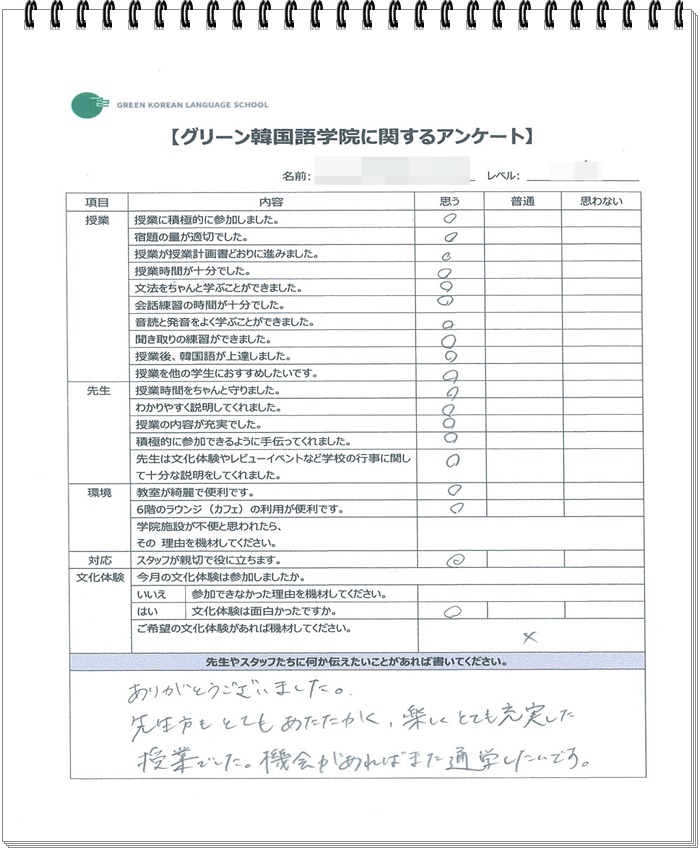 GREEN KOREAN LANGUAGE SCHOOL
【グリーン韓国語学院に関するアンケート】
名前: レベル:
項目 内容 思う 普通 思わない
授業 授業に積極的に参加しました。 ○
宿題の量が適切でした。 ○
授業が授業計画書どおりに進みました。 ○
授業時間が十分でした。 ○
文法をちゃんと学ぶことができました。 ○
会話練習の時間が十分でした。 ○
音読と発音をよく学ぶことができました。 ○
聞き取りの練習ができました。 ○
授業後、韓国語が上達しました。 ○
授業を他の学生におすすめしたいです。 ○
先生 授業時間をちゃんと守りました。 ○
わかりやすく説明してくれました。 ○
授業の内容が充実でした。 ○
積極的に参加できるように手伝ってくれました。 ○
先生は文化体験やレビューイベントなど学校の行事に関し
て十分な説明をしてくれました。 ○
環境 教室が綺麗で便利です。 ○
6階のラウンジ（カフェ）の利用が便利です。 ○
学院施設が不便と思われたら、
その 理由を機材してください。
対応 スタッフが親切で役に立ちます。 ◎
文化体験 今月の文化体験は参加しましたか。
いいえ 参加できなかった理由を機材してください。
はい 文化体験は面白かったですか。 ○
ご希望の文化体験があれば機材してください。 ×
先生やスタッフたちに何か伝えたいことがあれば書いてください。
ありがとうございました。
先生方もとてもあたたかく、楽しくとても充実した
授業でした。機会があればまた通学したいです。